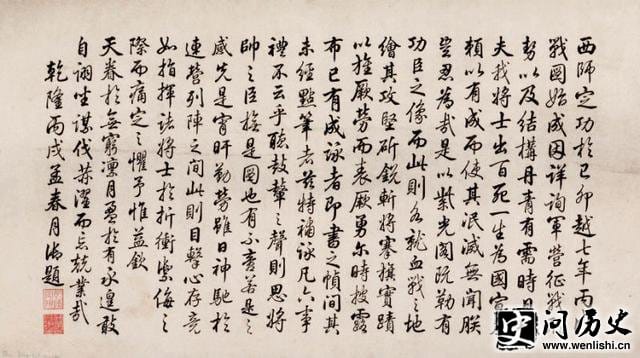 西師定功於己卯越七年丙
戰圖始成因詳詢軍營征戰
勢以及結構丹青有需時日
夫我將士出百死一生為國
賴以有成而使其泯滅無聞朕
豈忍為哉是以紫光閣既勒有
功臣之像而此則各就血戰之地
繪其攻堅斫銳斬將搴旗實蹟
以旌厥勞而表厥勇爾時披露
布已有成詠者即書之幀間其
未經點筆者茲特補詠凡六事
禮不云乎聽鼓鼙之聲則思將
帥之臣撫是圖也有不啻若是之
感先是宵旰勤勞雖日神馳於
連營列陣之間此則目擊心存竟
如指揮諸將士於折衝禦侮之
際而痛定之懼予惟益欽
天眷於無窮凜月盈於有永遑敢
自詡坐謀伐濯而忘兢業哉
乾隆丙戌孟春月御題
问历史
www.wenlishi.cn